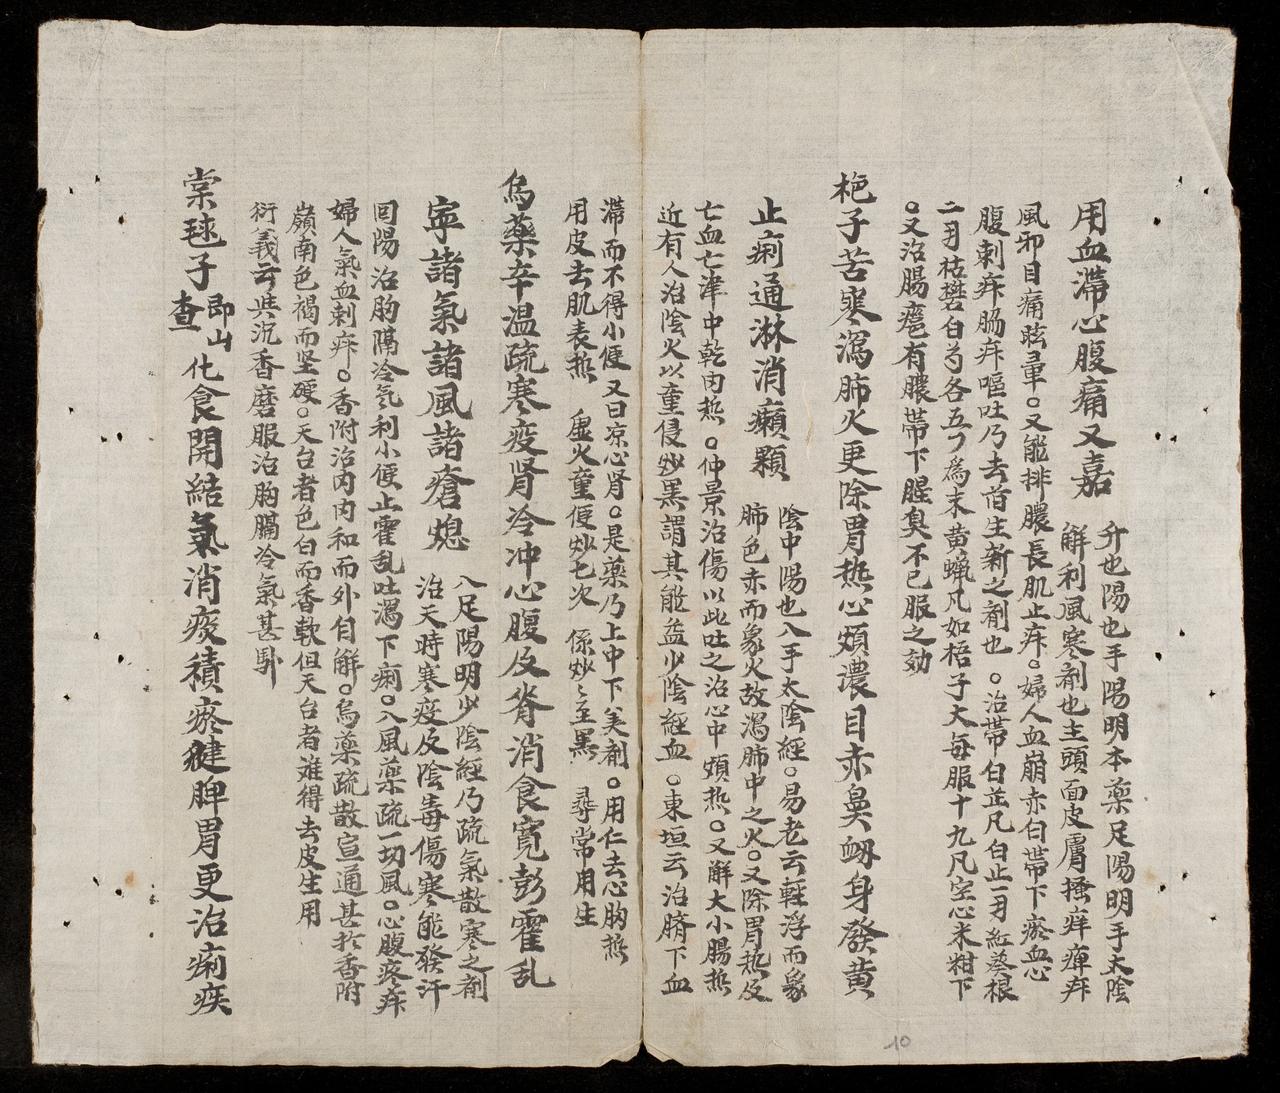 用血滯心腹痛又嘉
升也陽也手陽明本藥足陽明手太陰
解利風寒剤也主頭面皮膚搔痒痺疼
風邪目痛眩暈。又能排膿長肌止疼。婦人血崩赤白帶下瘀血心
腹刺疼脇疼嘔吐乃去旧生新之剤也 。治帶白芷凡白止一刄紅葵根
二刄枯礬白芍各五丁為末黄蝋凡如梧子大每服十九凡空心米粥下
。又治腸癰有膿帶下腥臭不已服之効
梔子苦寒瀉肺火更除胃热心煩濃目赤鼻衂身發黄
止痢通淋消癩顆
陰中陽也入手太陰經。易老云輕浮而象
肺色赤而象火故瀉肺中之火。又除胃热及
亡血亡津中乾内热。仲景治傷以此吐之治心中煩热。又解大小腸热
近有人治陰火以童侵炒黑謂其能益少陰經血。東垣云治臍下血
滯而不得小便又曰凉心肾。是藥乃上中下美剤。用仁去心胸热
用皮去肌表热 虚火童便炒七次 係炒〻至黑 尋常用生
烏藥辛温疏寒疫肾冷冲心腹及脊消食寬膨霍乱
寕諸氣諸風諸瘡熄
八足陽明少陰經乃疏氣散寒之剤
治天時寒疫及陰毒傷寒能發汗
回陽治胸膈冷氣利小便止霍乱吐瀉下痢。八風藥疏一切風。心腹疼疼
婦人氣血刺疼。香附治内内和而外自解。烏藥疏散宣通甚於香附
嶺南色褐而坚硬。天台者色白而香軟但天台者难得去皮生用
衍義云共沉香磨服治胸膈冷氣甚馴
棠毬子
即山查
化食開結氣消痰積瘀健脾胃更治痢疾
10